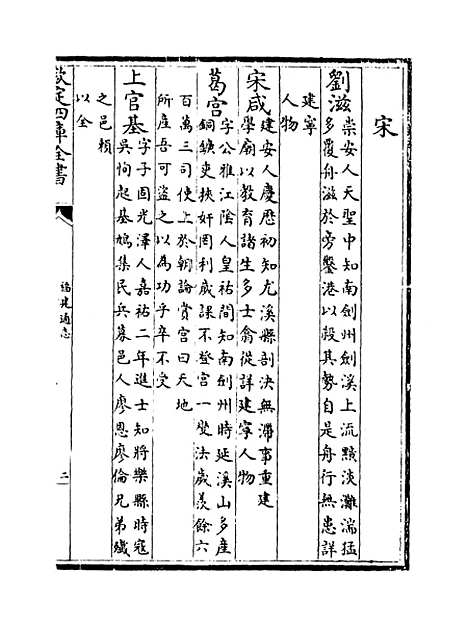 宋
劉滋崇安人天聖中知南劍州劍溪上流黯淡灘湍猛
多覆舟滋於旁鑿港以殺其勢自是舟行無患詳
建寧
人物
宋咸建安人慶歷初知尤溪縣剖決無滯事重建
學廟以教育諸生多士翕從詳建寧人物
葛宫字公雅江陰人皇祐間知南劍州時延溪山多產
銅鏣吏挾奸罔利歲課不登宫一變法歲羡餘六
百萬三司使上於朝論賞宫曰天地
所產吾可盜之以為功乎卒不受
上官基字子固光澤人嘉祐二年進士知將樂縣時寇
吳恂起基鳩集民兵募邑人廖恩廖倫兄弟殱
之邑頼
以全
欽定四庫全書
福建通志
二